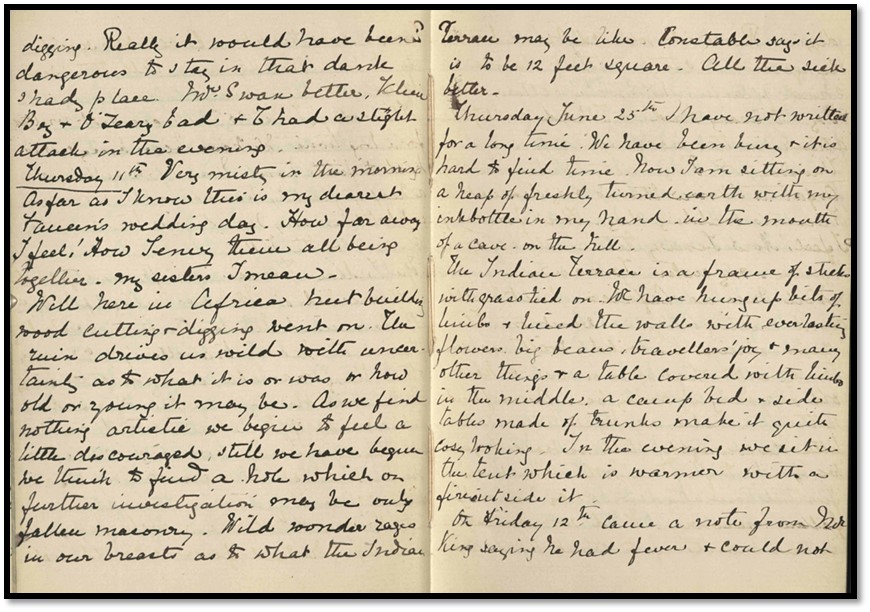 digging. Really it would have been
dangerous to stay in that dank
shady place. Mr Swan better, Klein
Boy & O'Leary bad & T had a slight
attack in the evening.
Thursday 11th Very misty in the morning
As far as I know this is my dearest
wedding day. How far away
I feel! How I envy them all being
together - my sisters I mean -
Well here in Africa hut building
wood cutting & digging went on. The
ruin drives us wild with uncer-
tainty as to what it is or was or how
old or young it may be. As we find
nothing artistic we begin to feel a
little discouraged, still we have begun
we think to find a hole which on
further investigation may be only
fallen masonry. Wild wonder rages
in our breasts as to what the Indian
Terrace may be like. Constable says it
is to be 12 feet square. All the sick
better -
Thursday June 25th I have not written
for a long time. We have been busy & it is
hard to find time. Now I am sitting on
a heap of freshly turned earth with my
inkbottle in my hand in the mouth
of a cave on the hill.
The Indian Terrace is a frame of sticks
with grass tied on. We have hung up bits of
limbo & lined the walls with everlasting
flowers, big beans, travellers' joy & many
other things & a table covered with limbo
in the middle, a camp bed & side
tables made of trunks make it quite
cosy looking. In the evening we sit in
the tent which is warmer with a
fire outside it.
On Friday 12th came a note from Mr
King saying he had fever & could not